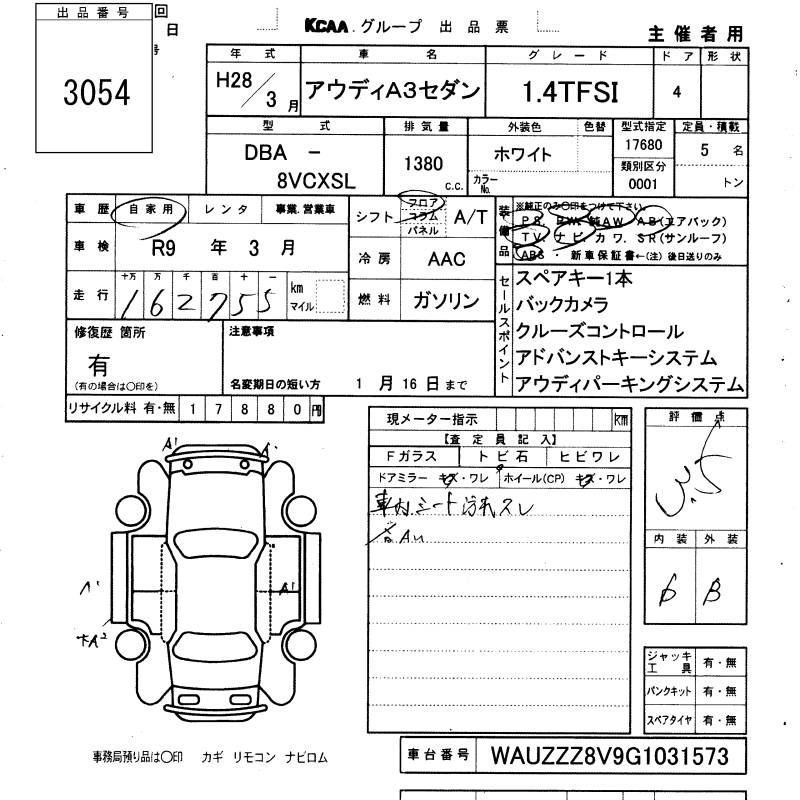 出品番号
回
日
号
3054
KCAA グループ 出品票
主催者用
年式 車名 グレード ドア 形状
H28/3月 アウディA3セダン 1.4TFSI 4
型式 排気量 外装色 色替 型式指定 定員・積載
DBA - 8VCXSL
1380 C.C.
ホワイト
カラーNo.
17680
類別区分
0001
5 名
トン
車歴 自家用 レンタ 事業.営業車
車検 R9 年 3 月
走行 十万 万 千 百 十 一
162755 km マイル
シフト フロア コラム パネル A/T
冷房 AAC
燃料 ガソリン
装備品
※純正のみ〇印をつけて下さい。
PS. PW. 純AW. AB(エアバック)
TV. ナビ. カワ. SR(サンルーフ)
ABS・新車保証書←(注)後日送りのみ
セールスポイント
スペアキー1本
バックカメラ
クルーズコントロール
アドバンストキーシステム
アウディパーキングシステム
修復歴 箇所
有
(有の場合は〇印を)
注意事項
名変期日の短い方 1月16日まで
リサイクル料 有・無 17880円
現メーター指示 km
【査定員記入】
Fガラス トビ石 ヒビワレ
ドアミラー キズ・ワレ ホイール(CP) キズ・ワレ
車内シート汚れスレ
評価点
3.5
内装 外装
B
A1
A1
A1
A2
ジャッキ工具 有・無
パンクキット 有・無
スペアタイヤ 有・無
事務局預り品は〇印 カギ リモコン ナビロム
車台番号 WAUZZZ8V9G1031573